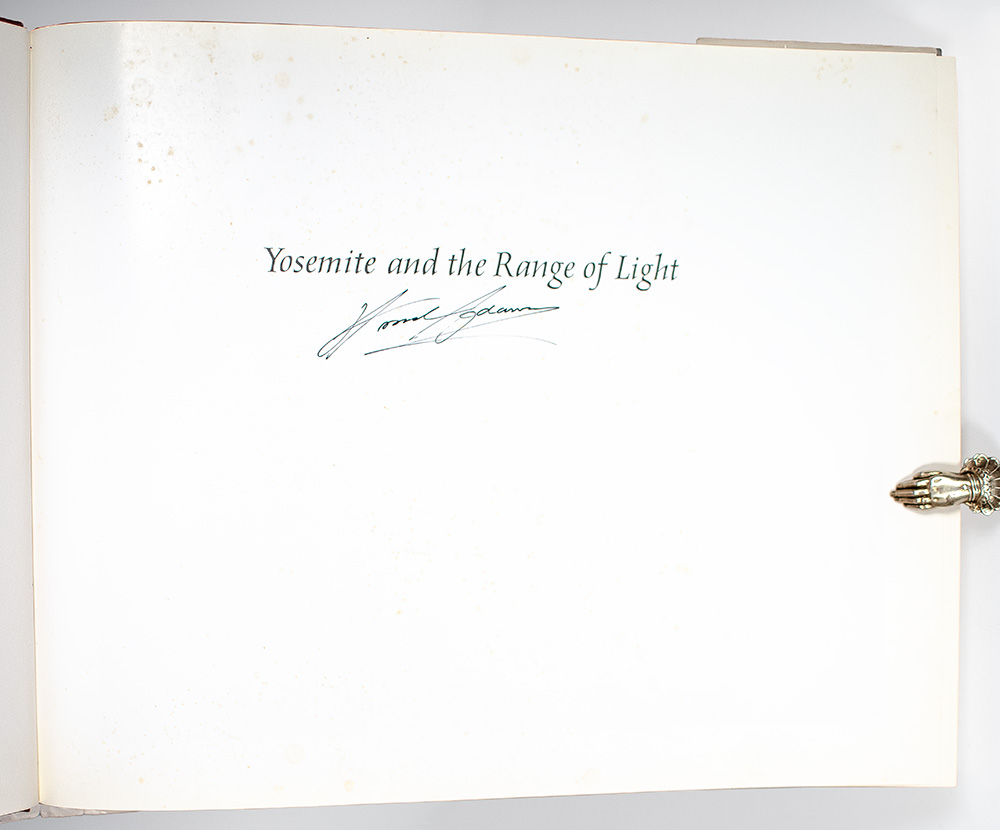 Yosemite and the Range of Light
Ansel Adams